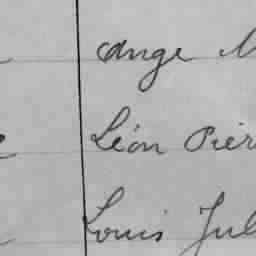 Ange
Léon Pier
Louis Jul